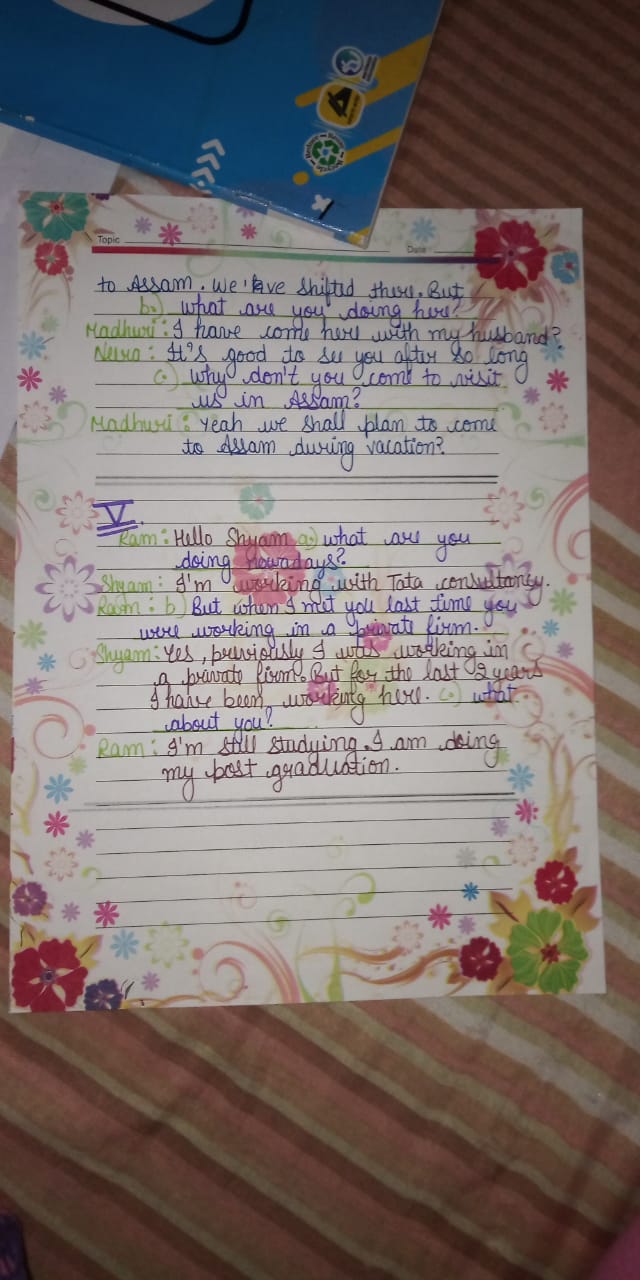 Topic
Date
to Assam. We've shifted there. But
b.) what are you doing here?
Madhuri: I have come here with my husband?
Neera: It's good to see you after so long
c.) why don't you come to visit
us in Assam?
Madhuri: Yeah we shall plan to come
to Assam during vacation?
V.
Ram: Hello Shyam a.) what are you
doing nowadays?
Shyam: I'm working with Tata consultancy.
Ram: b) But when I met you last time you
were working in a private firm.
Shyam: Yes, previously I was working in
a private firm. But for the last 2 years
I have been working here. c.) what
about you?
Ram: I'm still studying. I am doing
my post graduation.